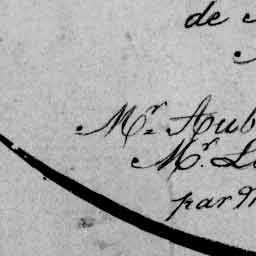 de
Mr. Aub
Mr. L
par M